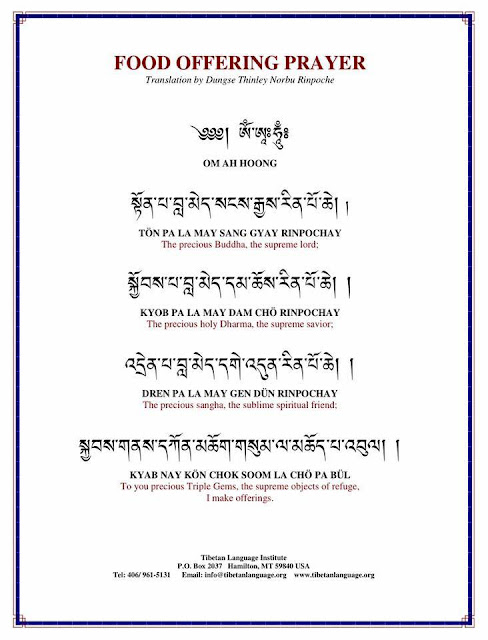 FOOD OFFERING PRAYER
Translation by Dungse Thinley Norbu Rinpoche
༄༅༅། ཨོཾ་ཨཱཿཧཱུྃ༔
OM AH HOONG
སྟོན་པ་བླ་མེད་སངས་རྒྱས་རིན་པོ་ཆེ། །
TÖN PA LA MAY SANG GYAY RINPOCHAY
The precious Buddha, the supreme lord;
སྐྱོབས་པ་བླ་མེད་དམ་ཆོས་རིན་པོ་ཆེ། །
KYOB PA LA MAY DAM CHÖ RINPOCHAY
The precious holy Dharma, the supreme savior;
འདྲེན་པ་བླ་མེད་དགེ་འདུན་རིན་པོ་ཆེ། །
DREN PA LA MAY GEN DÜN RINPOCHAY
The precious sangha, the sublime spiritual friend;
སྐྱབས་གནས་དཀོན་མཆོག་གསུམ་ལ་མཆོད་པ་འབུལ། །
KYAB NAY KÖN CHOK SOOM LA CHÖ PA BÜL
To you precious Triple Gems, the supreme objects of refuge,
I make offerings.
Tibetan Language Institute
P.O. Box 2037 Hamilton, MT 59840 USA
Tel: 406/ 961-5131 Email: info@tibetanlanguage.org www.tibetanlanguage.org